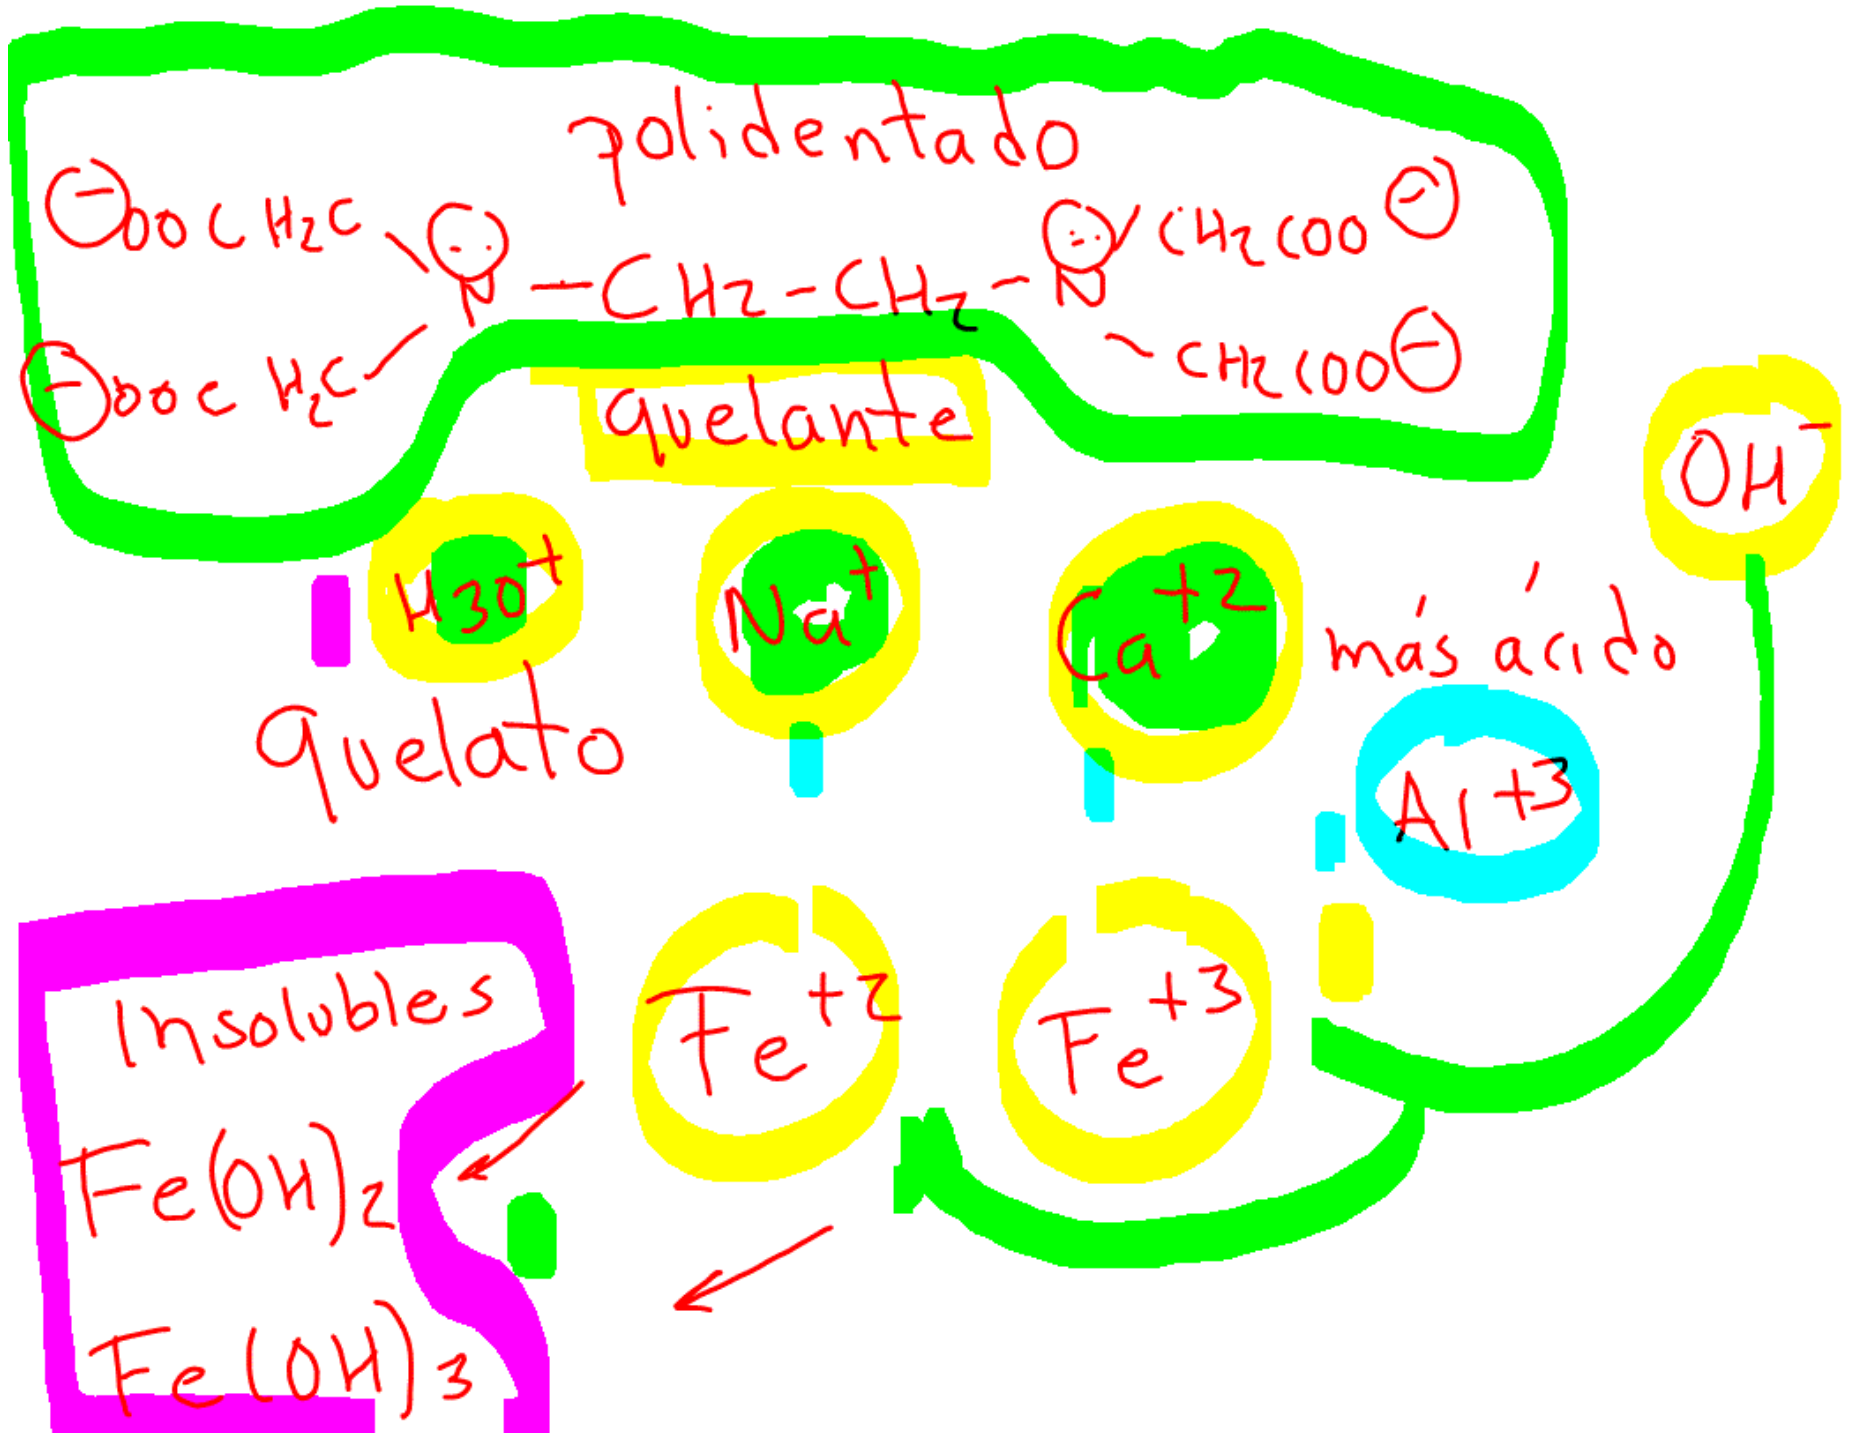 polidentado
⊖OOCH₂C CH₂COO⊖
N-CH₂-CH₂-N
⊖OOCH₂C CH₂COO⊖
quelante
OH⁻
H3O⁺ Na⁺ Ca⁺²
más ácido
quelato
Al⁺³
Insolubles
Fe⁺² Fe⁺³
Fe(OH)₂
Fe(OH)₃